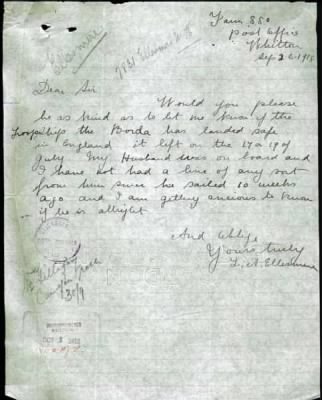 Farm 880
post office
Whitton
Sep 26 1918
Ellesmere
7831 Ellesmere
Dear Sir
Would you please
be as kind as to let me know if the
troopships the Borda has landed safe
in England it left on the 17 or 19 of
July My Husband was on board and
I have not had a line of any sort
from him since he sailed 10 weeks
ago and I am getting anxious to know
if he is allright
And oblige
Yours truly
L. A. Ellesmere
30/9
OCT 2 1918